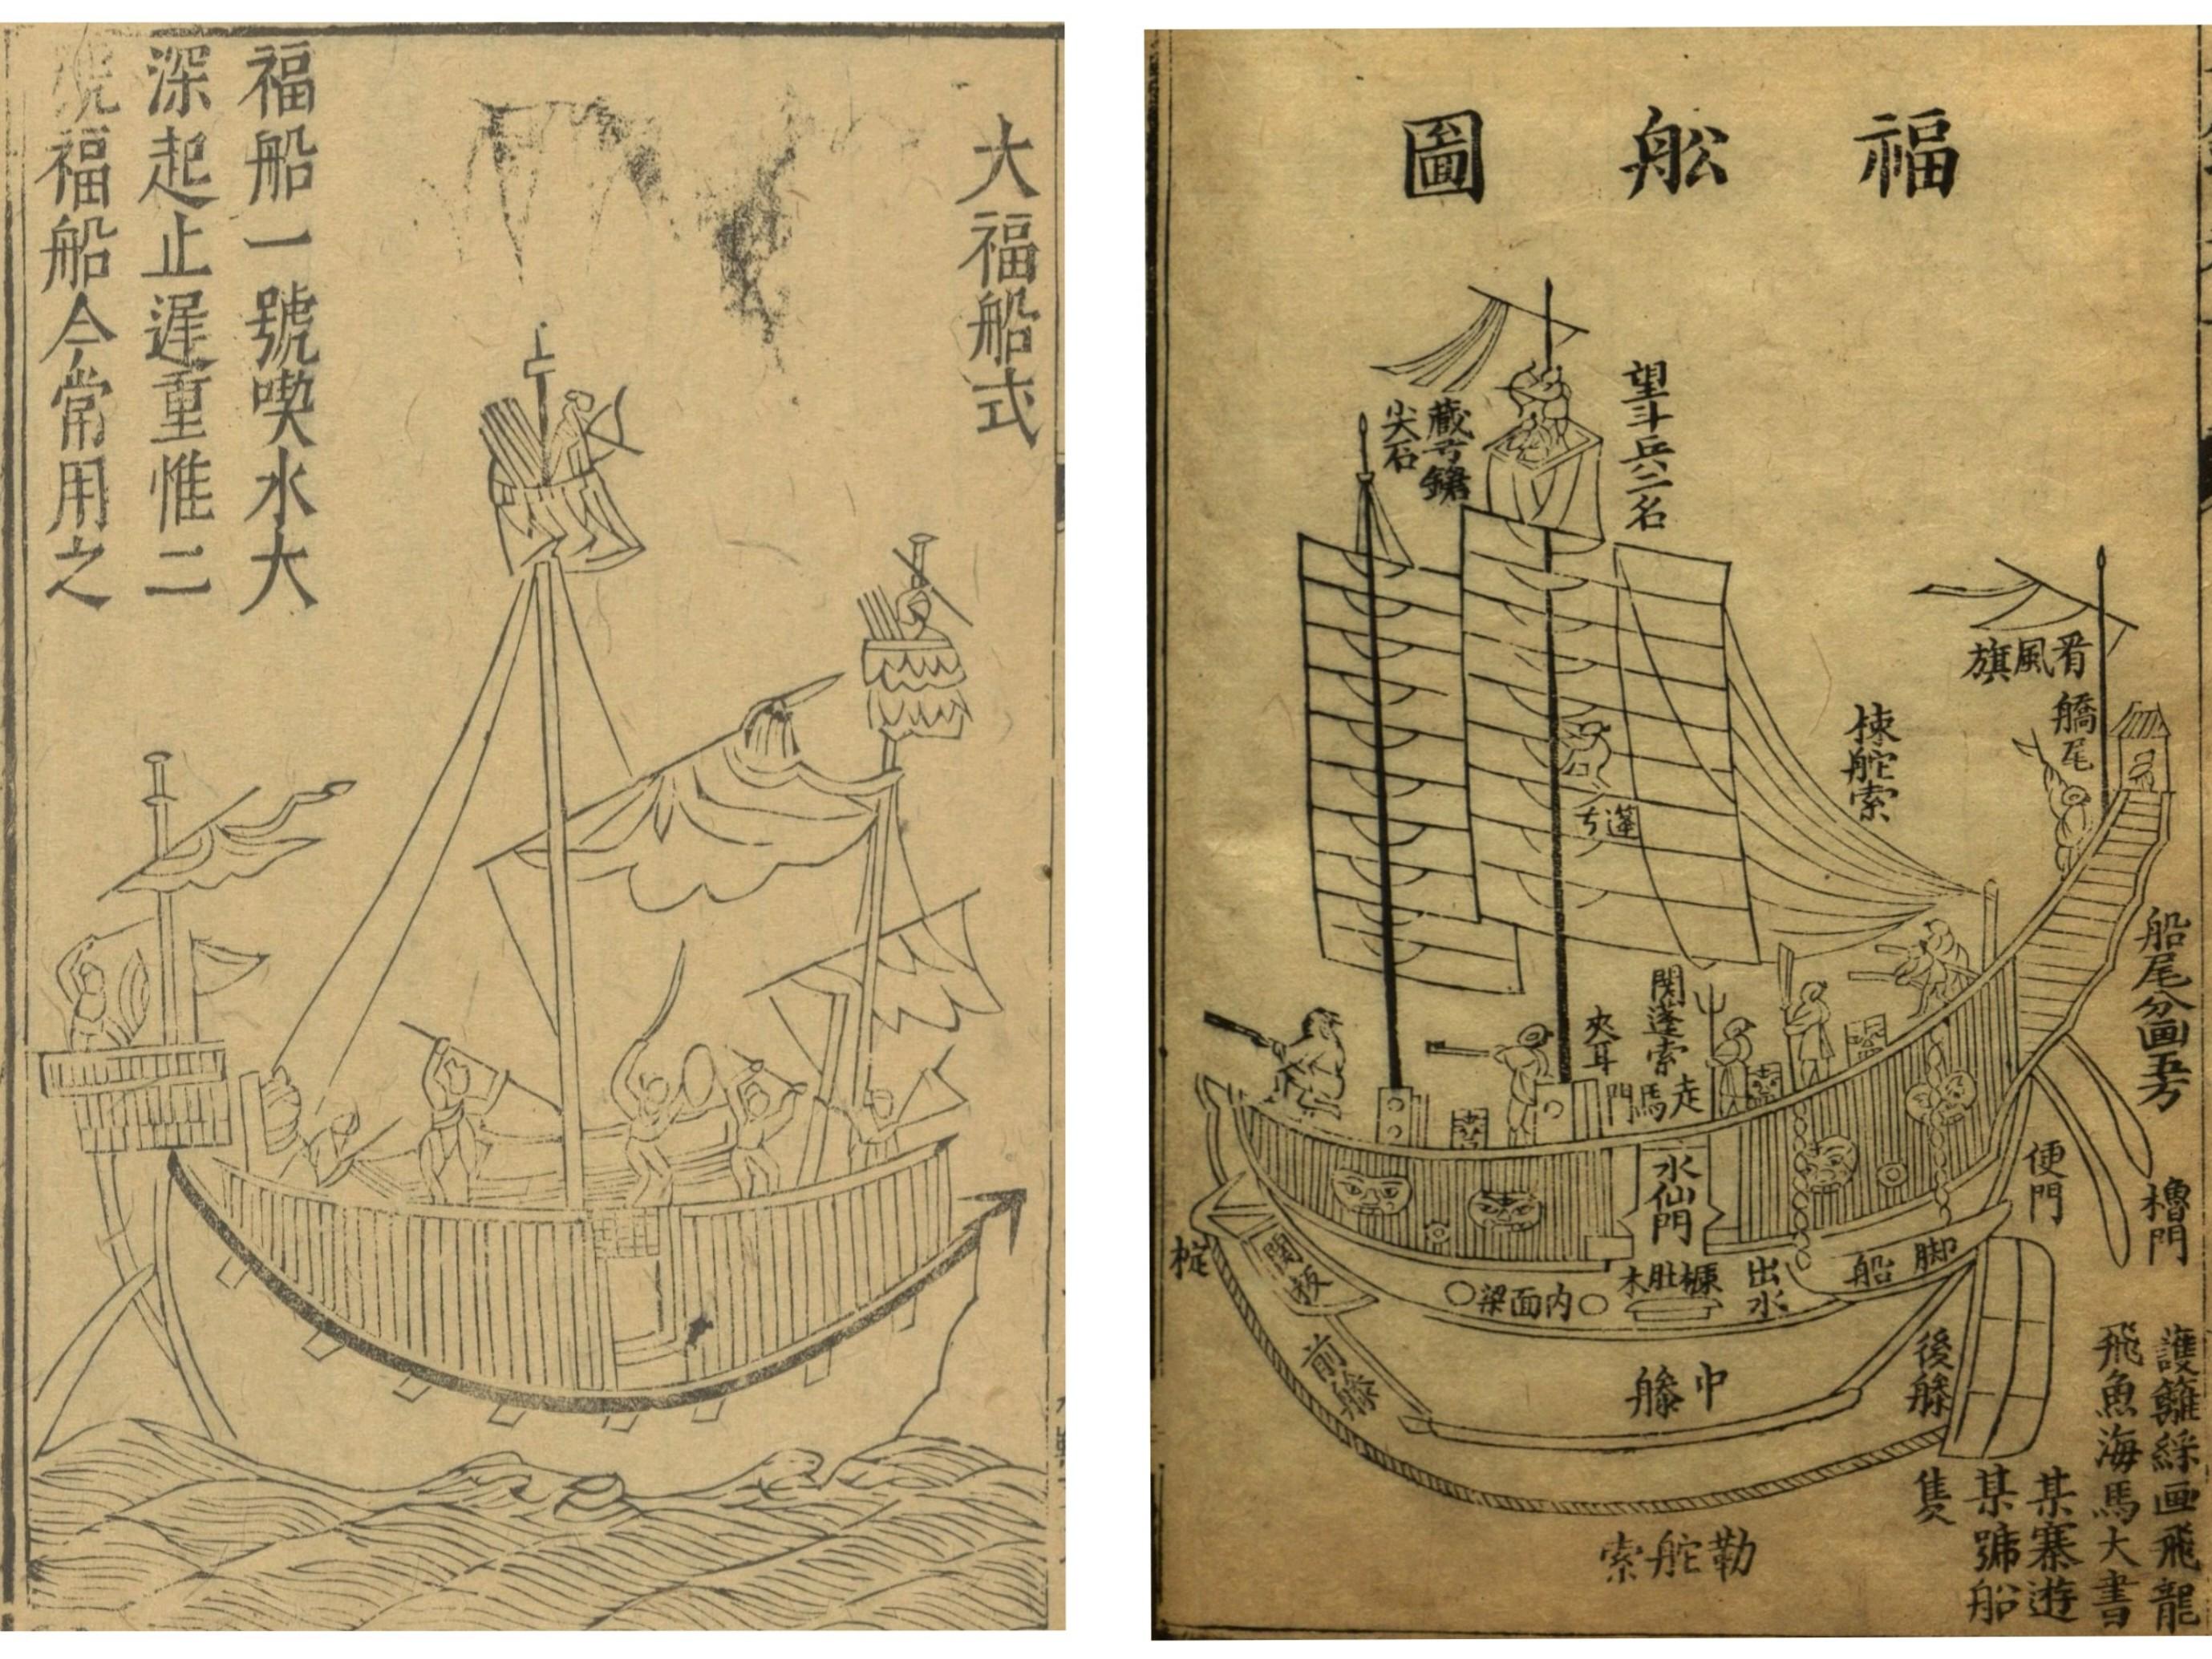 大福船式
福船一號喫水大
深起止遲重惟二
號福船今常用之
福舩圖
望斗兵二名
藏弓鏢
尖石
看風旗
艞尾
楝舵索
蓬
船尾分画五方
関蓬索
夾耳
走馬門
水仙門
便門
櫓門
椗
関板
内面梁
橛肚木
出水
脚船
前艕
中艕
後艕
勒舵索
護籬綵画飛龍
飛魚海馬大書
某寨遊
某號船
隻